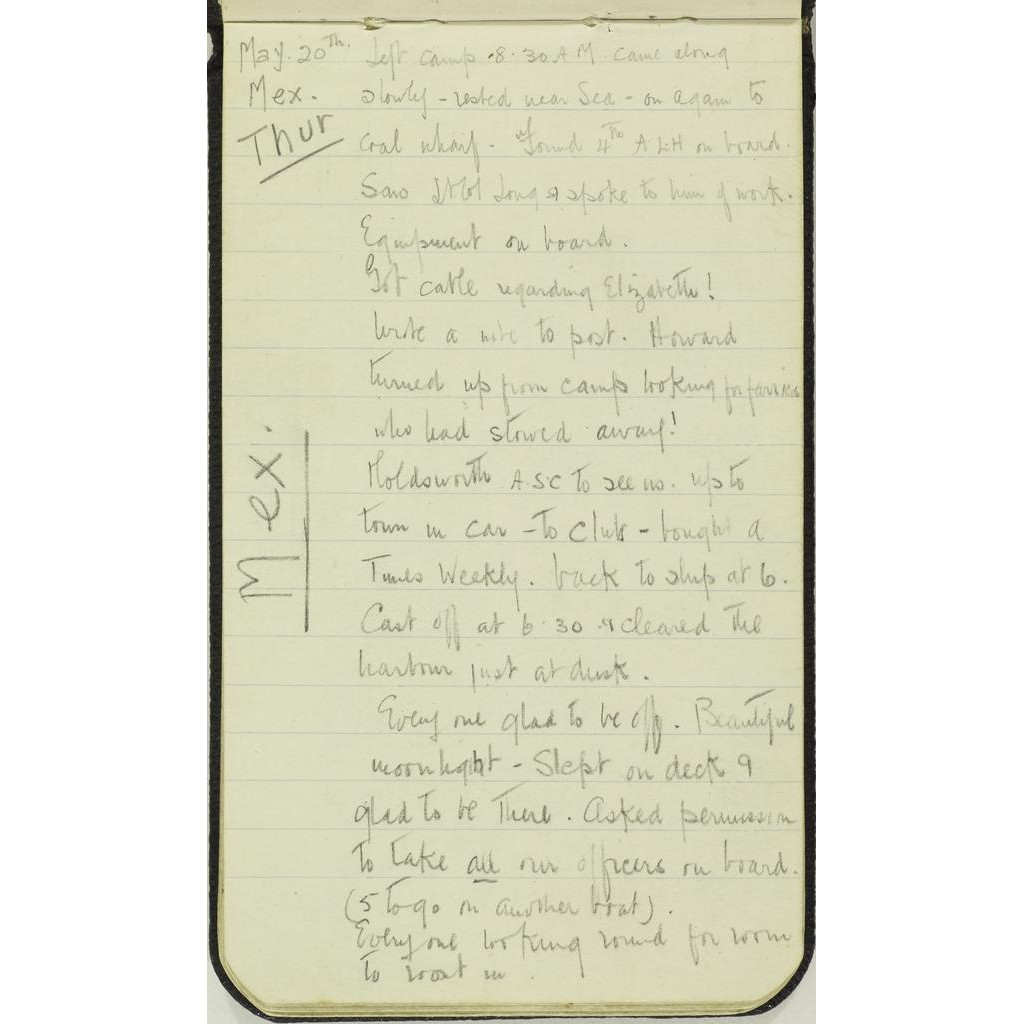 May. 20th. Left camp 8.30 A.M. came along
Mex. slowly - rested near Sea - on again to
Thur coal wharf. Found 4th A L H on board.
Saw Lt Col Long & spoke to him of work.
Equipment on board.
Got cable regarding Elizabeth!
Wrote a note to post. Howard
turned up from camp looking for
who had stowed away!
Mex.
Holdsworth A.S.C to see us. up to
town in car - to club - bought a
Times Weekly. back to ship at 6.
Cast off at 6.30 & cleared the
harbour just at dusk.
Every one glad to be off. Beautiful
moonlight - Slept on deck &
glad to be there. Asked permission
to take all our officers on board.
(5 to go on another boat).
Every one looking round for room
to roost in.